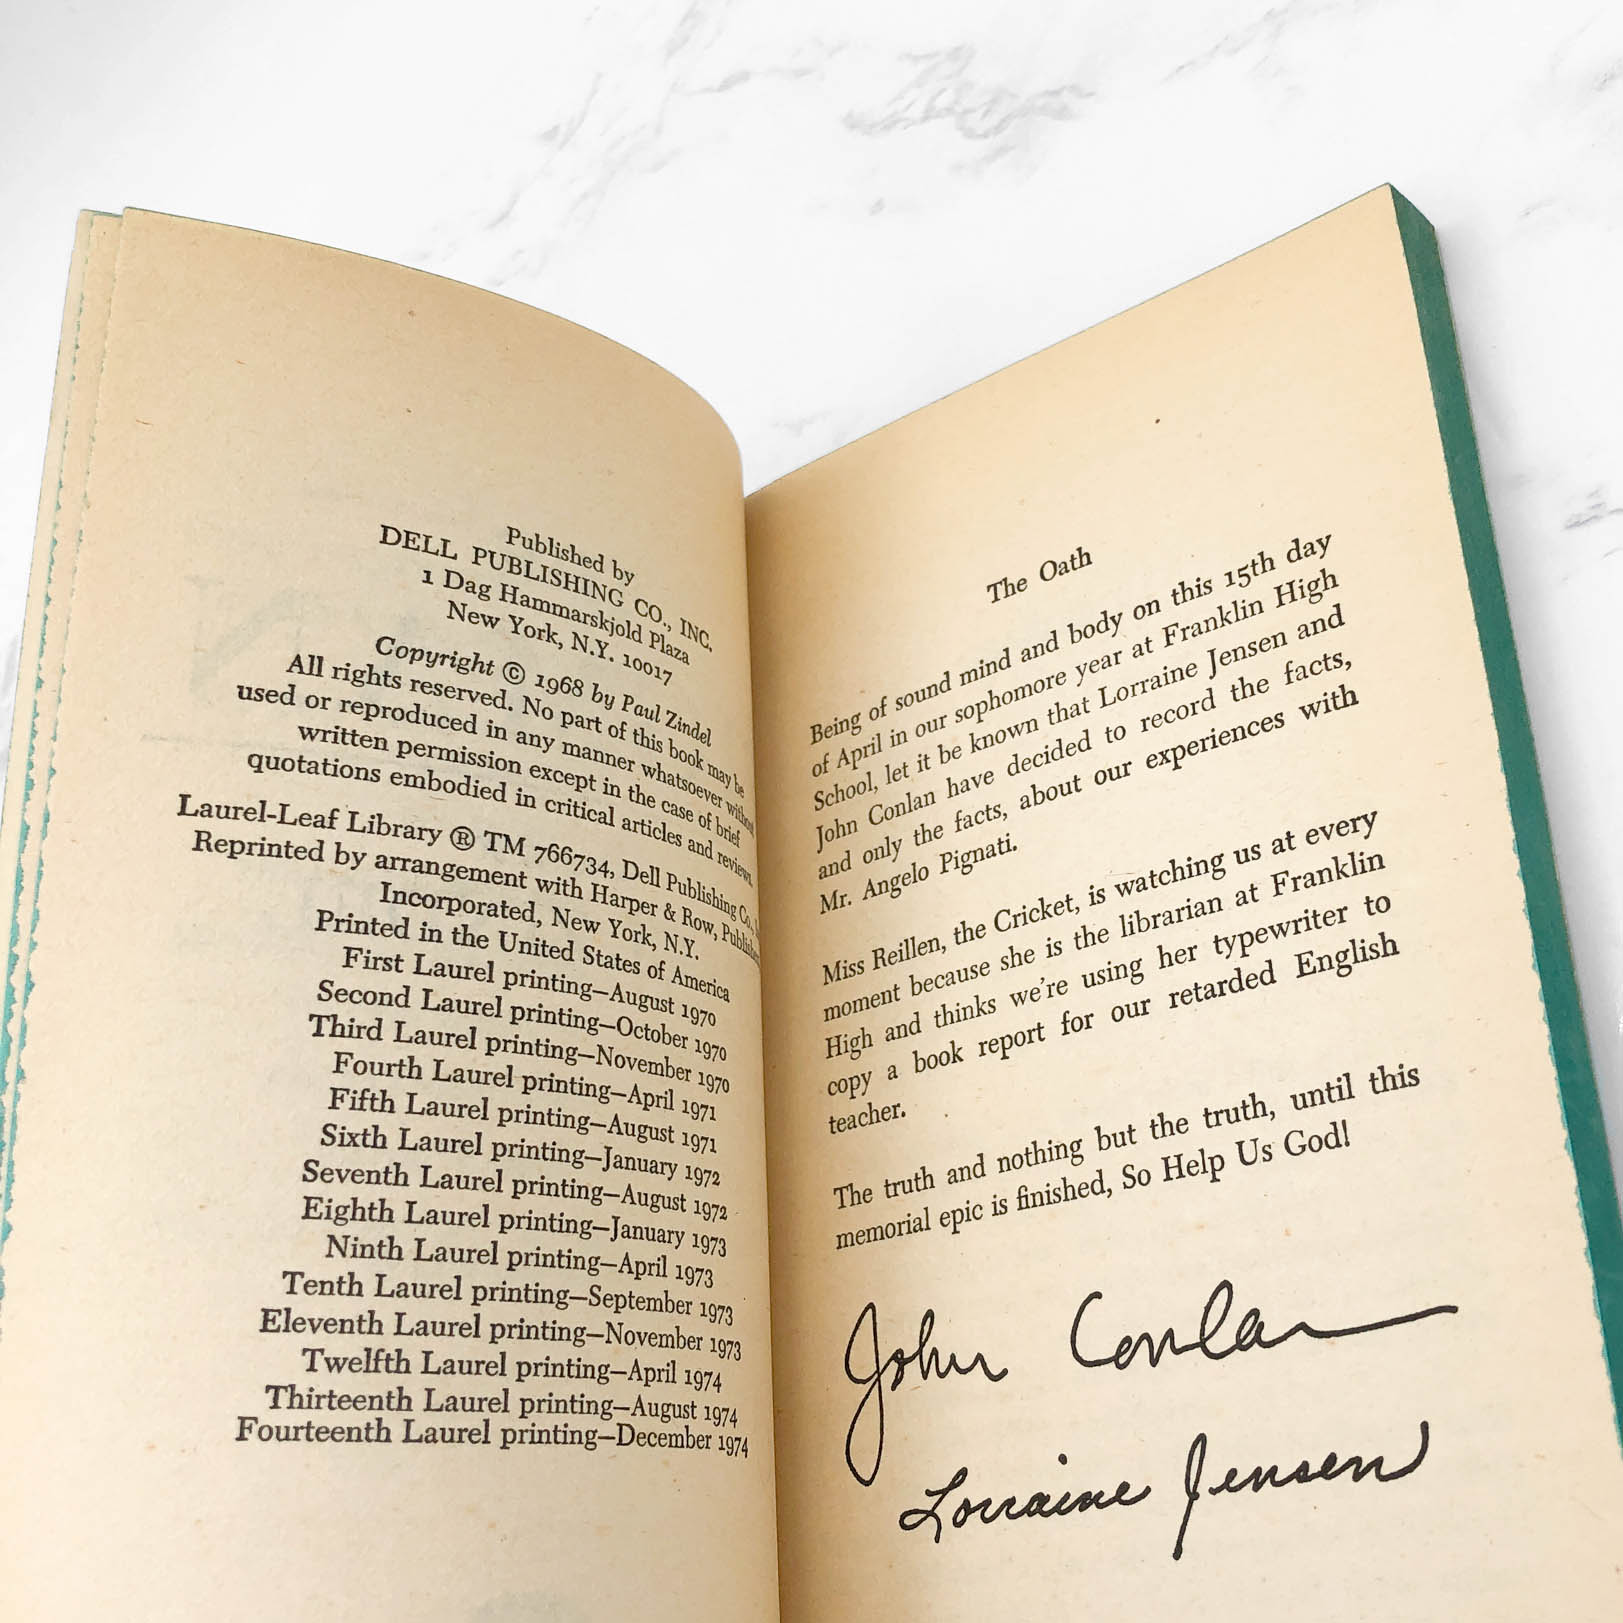 Published by
DELL PUBLISHING CO., INC.
1 Dag Hammarskjold Plaza
New York, N.Y. 10017
Copyright © 1968 by Paul Zindel
All rights reserved. No part of this book may be
used or reproduced in any manner whatsoever without
written permission except in the case of brief
quotations embodied in critical articles and reviews.
Laurel-Leaf Library ® TM 766734, Dell Publishing Co.,
Reprinted by arrangement with Harper & Row,
Incorporated, New York, N.Y.
Printed in the United States of America
First Laurel printing—August 1970
Second Laurel printing—October 1970
Third Laurel printing—November 1970
Fourth Laurel printing—April 1971
Fifth Laurel printing—August 1971
Sixth Laurel printing—January 1972
Seventh Laurel printing—August 1972
Eighth Laurel printing—January 1973
Ninth Laurel printing—April 1973
Tenth Laurel printing—September 1973
Eleventh Laurel printing—November 1973
Twelfth Laurel printing—April 1974
Thirteenth Laurel printing—August 1974
Fourteenth Laurel printing—December 1974
The Oath
Being of sound mind and body on this 15th day
of April in our sophomore year at Franklin High
School, let it be known that Lorraine Jensen and
John Conlan have decided to record the facts,
and only the facts, about our experiences with
Mr. Angelo Pignati.
Miss Reillen, the Cricket, is watching us at every
moment because she is the librarian at Franklin
High and thinks we're using her typewriter to
copy a book report for our retarded English
teacher.
The truth and nothing but the truth, until this
memorial epic is finished, So Help Us God!
John Conlan
Lorraine Jensen